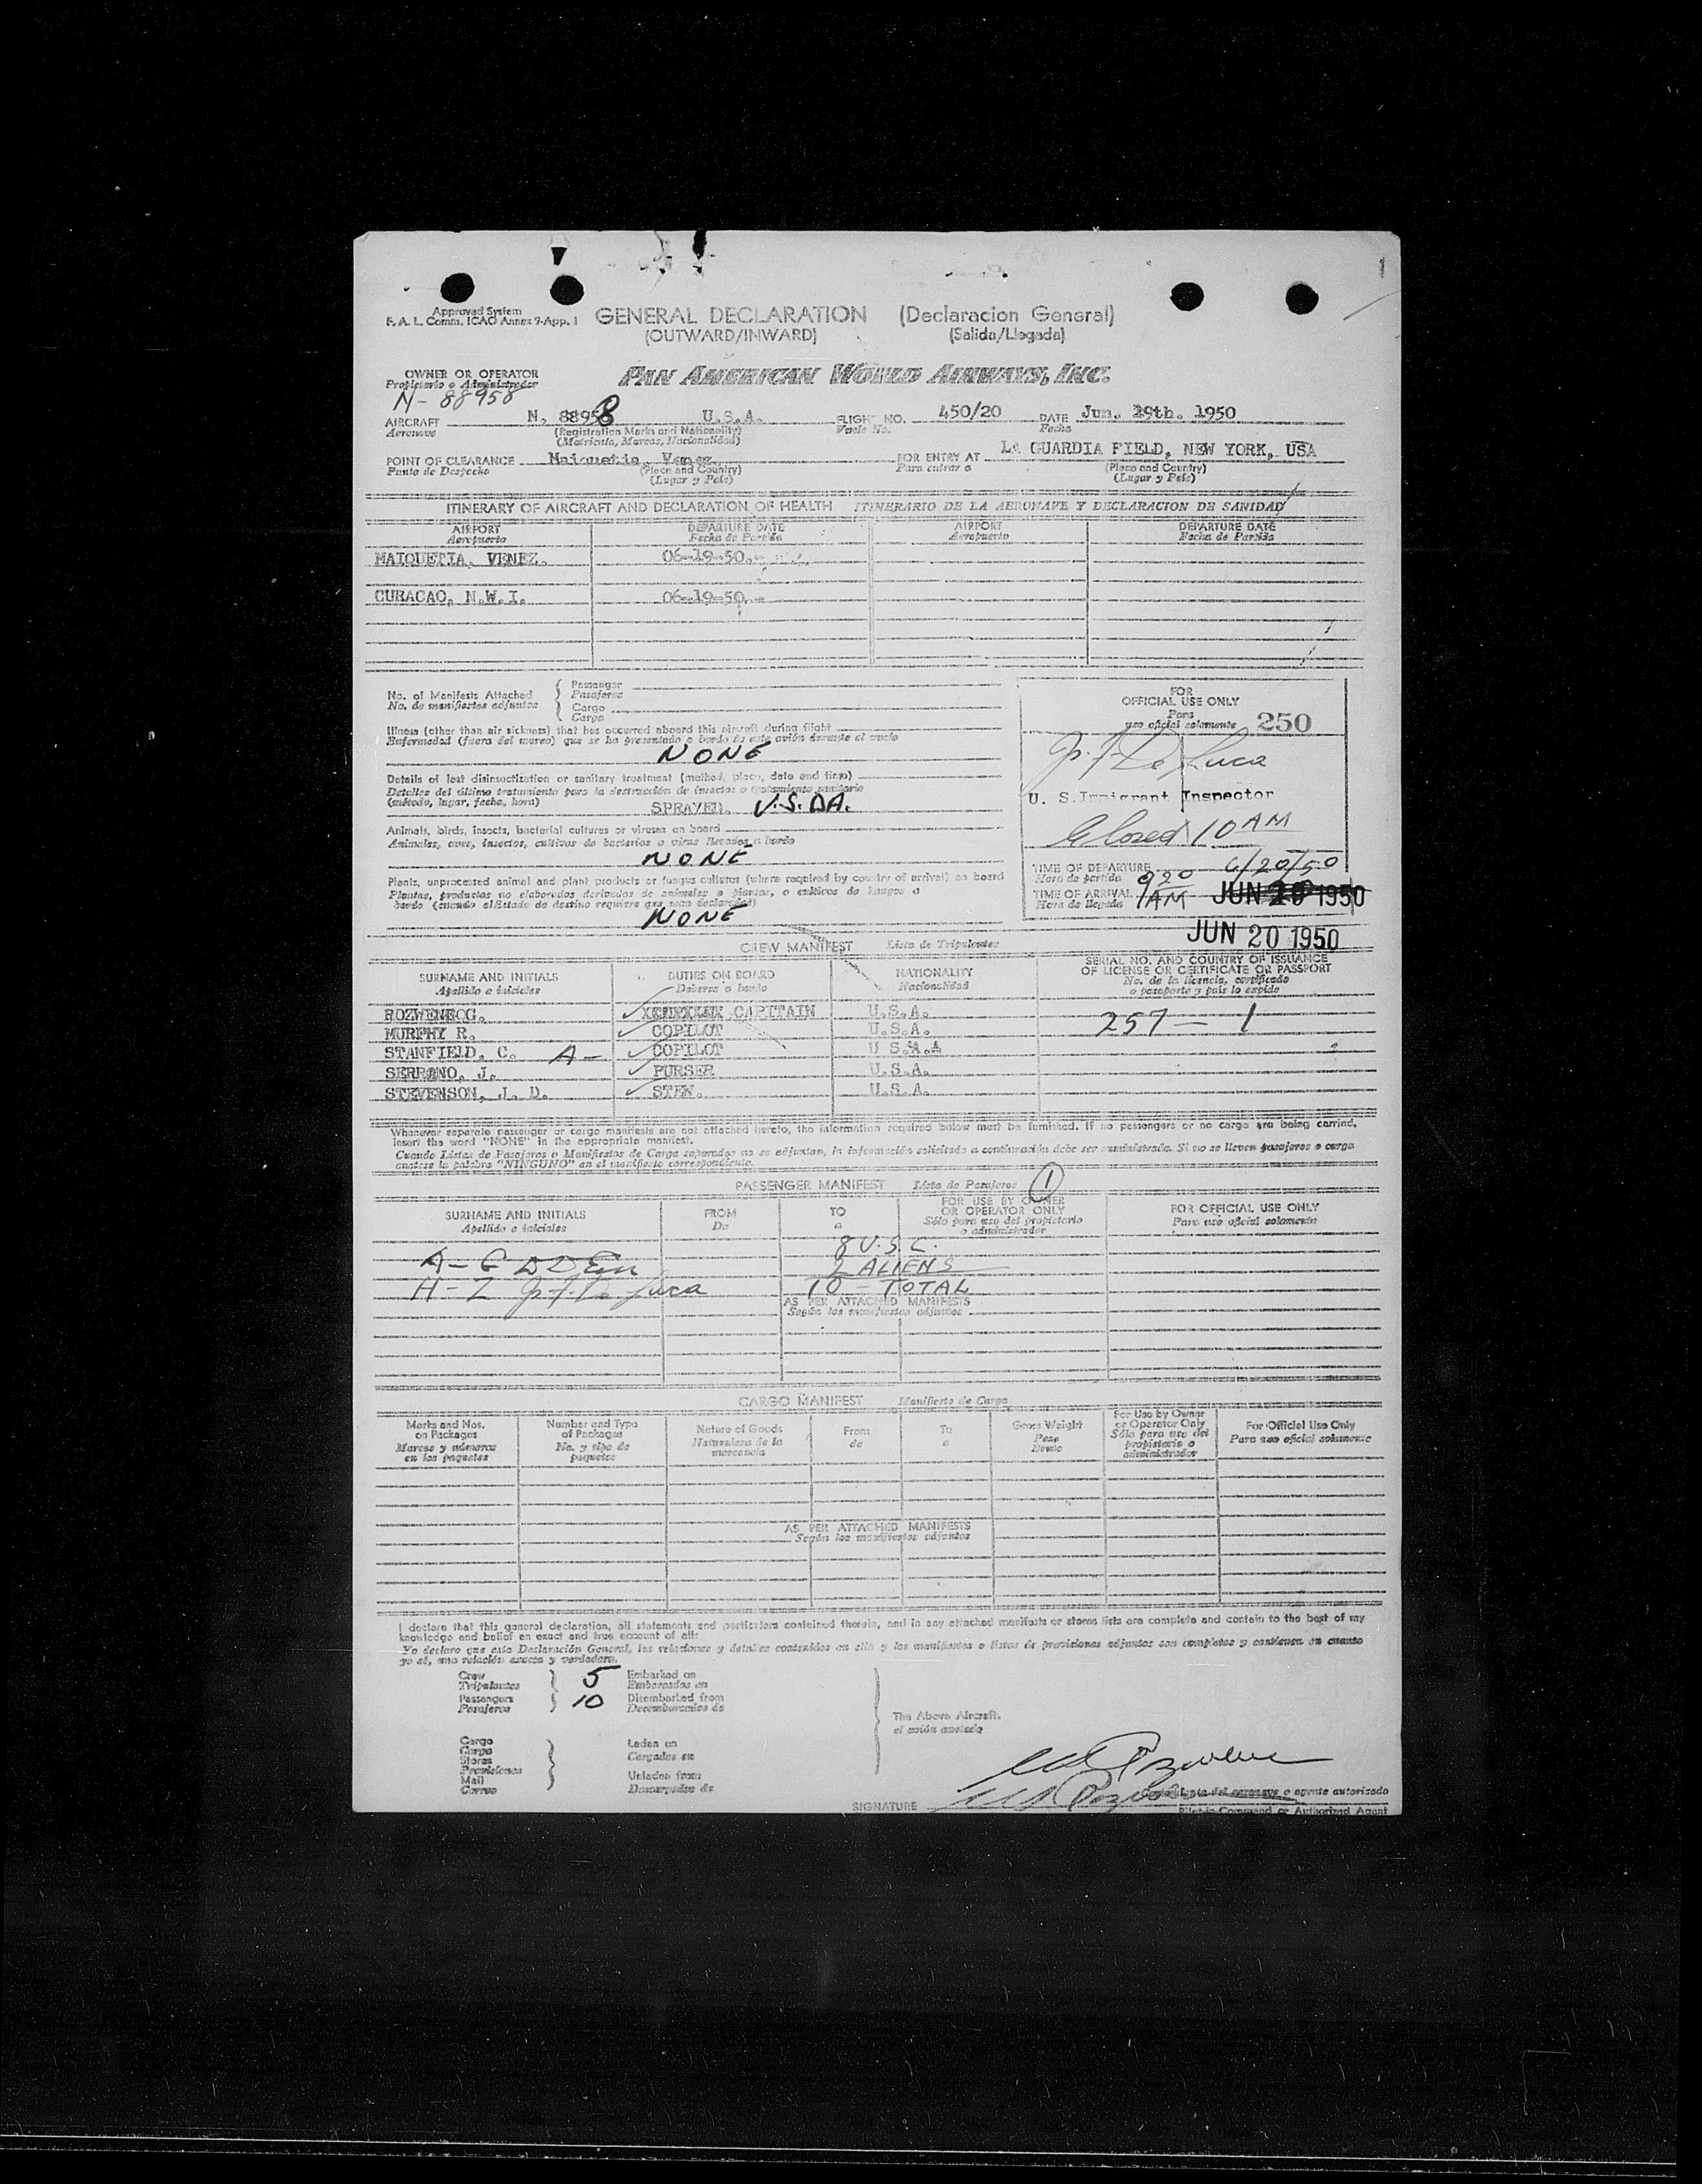 Approved System
F. A. L. Comm. ICAO Annex 9-App. 1
GENERAL DECLARATION (Declaracion General)
(OUTWARD/INWARD) (Salida/Llegada)
OWNER OR OPERATOR
Propietario o Administrador
PAN AMERICAN WORLD AIRWAYS, INC.
N- 88958
AIRCRAFT N. 88958 U.S.A. FLIGHT NO. 450/20 DATE Jun. 19th. 1950
Aeronave (Registration Marks and Nationality) Vuelo No. Fecha
(Matricula, Marcas, Nacionalidad)
POINT OF CLEARANCE Maiquetia, Venez. FOR ENTRY AT LA GUARDIA FIELD, NEW YORK, USA
Punto de Despacho (Place and Country) Para entrar a (Place and Country)
(Lugar y País) (Lugar y País)
ITINERARY OF AIRCRAFT AND DECLARATION OF HEALTH ITINERARIO DE LA AERONAVE Y DECLARACION DE SANIDAD
AIRPORT DEPARTURE DATE AIRPORT DEPARTURE DATE
Aeropuerto Fecha de Partida Aeropuerto Fecha de Partida
MAIQUETIA, VENEZ. 06-19-50.-
CURACAO, N.W.I. 06-19-50.-
No. of Manifests Attached
No. de manifiestos adjuntos
Passenger
Pasajeros
Cargo
Carga
FOR
OFFICIAL USE ONLY
Para
uso oficial solamente 250
Illness (other than air sickness) that has occurred aboard this aircraft during flight
Enfermedad (fuera del mareo) que se ha presentado a bordo de este avión durante el vuelo
NONE
J. F. De Luca
Details of last disinsectization or sanitary treatment (method, place, date and time)
Detalles del último tratamiento para la destrucción de insectos o tratamiento sanitario
(método, lugar, fecha, hora)
SPRAYED. U.S.DA.
U. S. Immigrant Inspector
Animals, birds, insects, bacterial cultures or viruses on board
Animales, aves, insectos, cultivos de bacterias o virus llevados a bordo
NONE
Closed 10 AM
Plants, unprocessed animal and plant products or fungus cultures (where required by country of arrival) on board
Plantas, productos no elaborados derivados de animales o plantas, o cultivos de hongos a
bordo (cuando el Estado de destino requiere que sean declarados)
NONE
TIME OF DEPARTURE 6/20/50
Hora de partida
TIME OF ARRIVAL 9 20 AM JUN 1950
Hora de llegada
JUN 20 1950
CREW MANIFEST Lista de Tripulantes
SURNAME AND INITIALS DUTIES ON BOARD NATIONALITY SERIAL NO. AND COUNTRY OF ISSUANCE
OF LICENSE OR CERTIFICATE OR PASSPORT
Apellido e iniciales Deberes a bordo Nacionalidad No. de la licencia, certificado
o pasaporte y país lo expide
CAPITAIN U.S.A.
MURPHY R. COPILOT U.S.A. 257 - 1
STANFIELD, C. A- COPILOT U S.A.
SERRANO, J. PURSER U.S.A.
STEVENSON, J. D. STEW. U.S.A.
Whenever separate passenger or cargo manifests are not attached hereto, the information required below must be furnished. If no passengers or no cargo are being carried,
insert the word "NONE" in the appropriate manifest.
Cuando Listas de Pasajeros o Manifiestos de Carga separados no se adjuntan, la información solicitada a continuación debe ser suministrada. Si no se llevan pasajeros o carga
anótese la palabra "NINGUNO" en el manifiesto correspondiente.
PASSENGER MANIFEST Lista de Pasajeros 1
SURNAME AND INITIALS FROM TO FOR USE BY OWNER
OR OPERATOR ONLY FOR OFFICIAL USE ONLY
Apellido e iniciales De a Sólo para uso del propietario
o administrador Para uso oficial solamente
8 U.S.C.
A-G 2 ALIENS
H-Z J. F. De Luca 10 - TOTAL
AS PER ATTACHED MANIFESTS
Según los manifiestos adjuntos
CARGO MANIFEST Manifiesto de Carga
Marks and Nos.
on Packages
Marcas y números
en los paquetes
Number and Type
of Packages
No. y tipo de
paquetes
Nature of Goods
Naturaleza de la
mercancia
From
de
To
a
Gross Weight
Peso
Bruto
For Use by Owner
or Operator Only
Sólo para uso del
propietario o
administrador
For Official Use Only
Para uso oficial solamente
AS PER ATTACHED MANIFESTS
Según los manifiestos adjuntos
I declare that this general declaration, all statements and particulars contained therein, and in any attached manifests or stores lists are complete and contain to the best of my
knowledge and belief an exact and true account of all:
Yo declaro que esta Declaración General, las relaciones y detalles contenidos en ella y los manifiestos o listas de provisiones adjuntos son completos y contienen en cuanto
yo sé, una relación exacta y verdadera.
Crew
Tripulantes 5
Passengers
Pasajeros 10
Embarked on
Embarcados en
Disembarked from
Desembarcados de
The Above Aircraft.
el avión anotado
Cargo
Carga
Stores
Provisiones
Mail
Correo
Laden on
Cargados en
Unladen from
Descargados de
SIGNATURE
Comandante del aeronave o agente autorizado
Pilot in Command or Authorized Agent